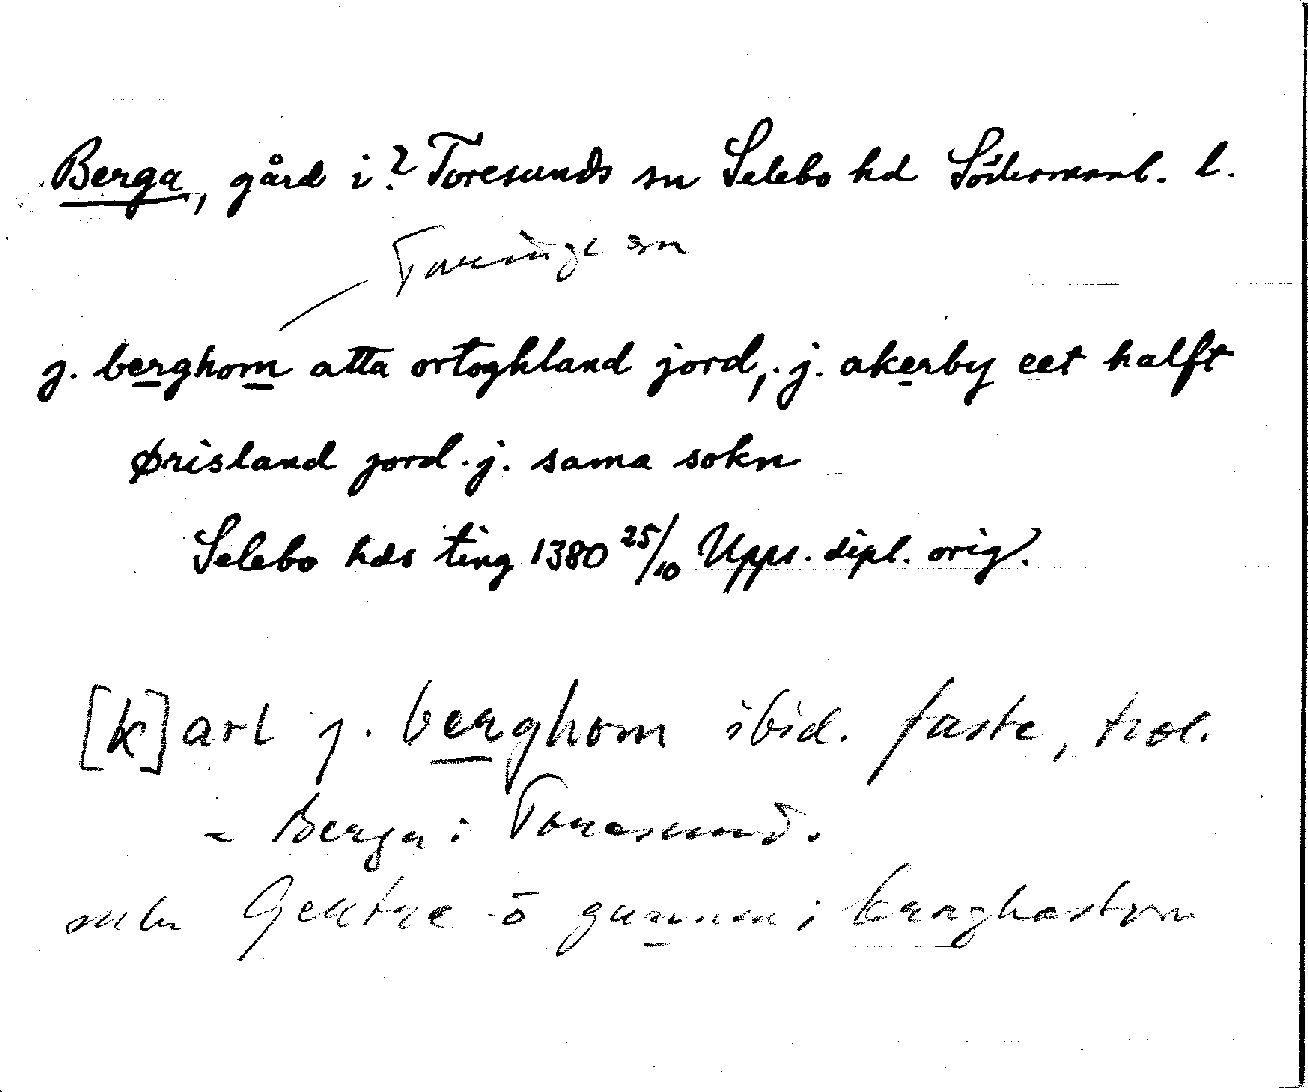 Berga, gård i? Toresunds sn Selebo hd Södermanl. l.
Taringe sn
j. berghom atta ortoghland jord, j. akerby eet halft
ørisland jord j. sama sokn
Selebo hds ting 1380 25/10 Upps. dipl. orig.
[k]arl j. berghom ibid. faste, trol.
= Berga i Toresund.
men ō gunnar i berghastom